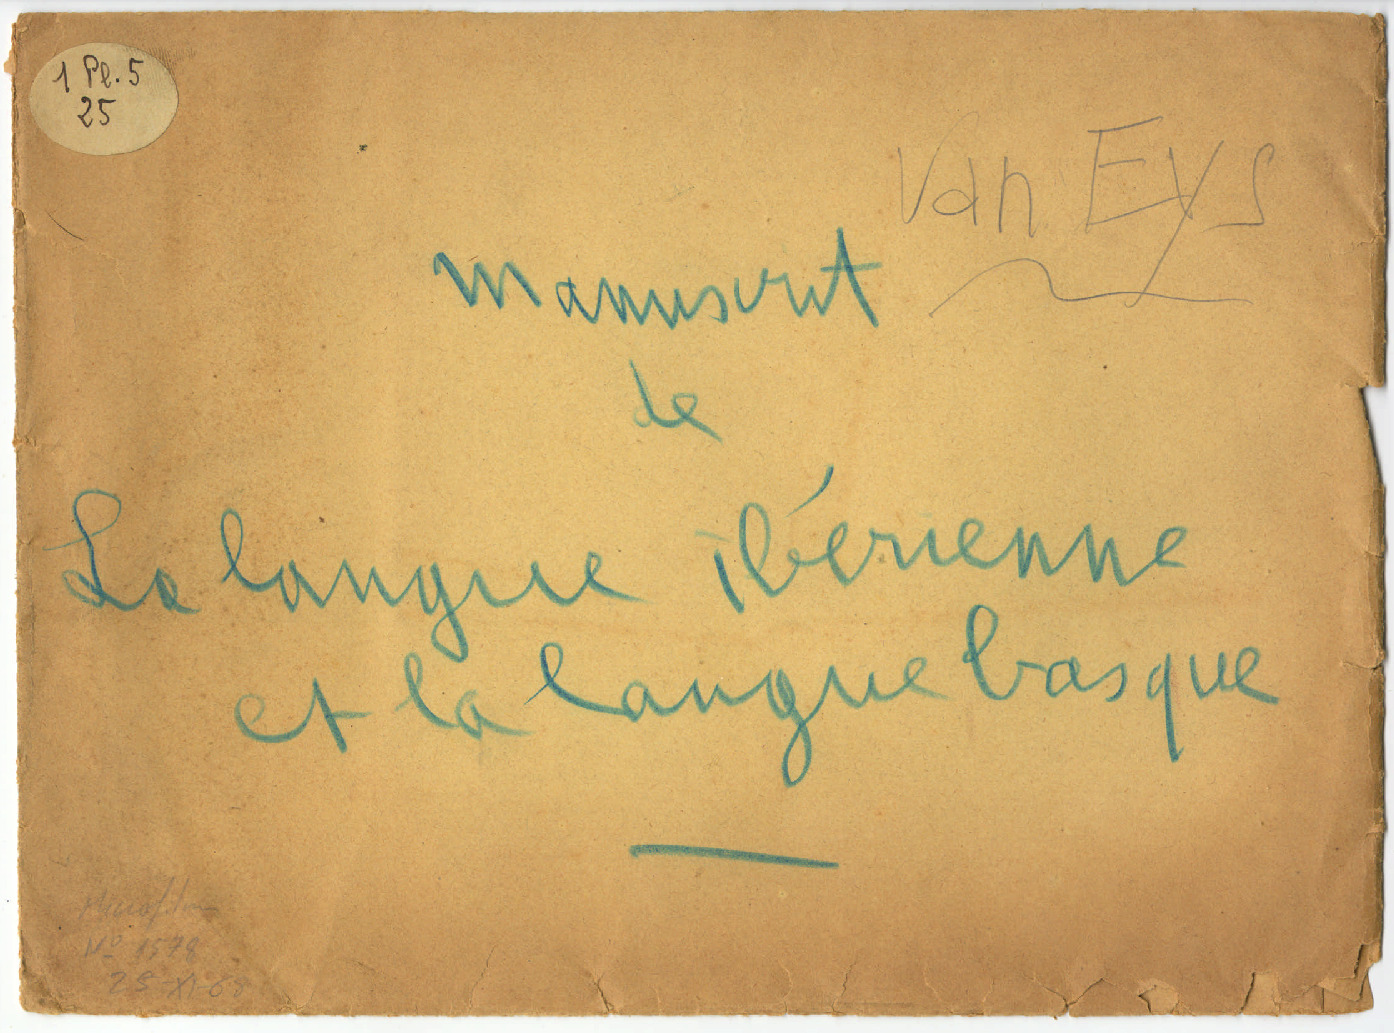 1 Pl. 5
25
Van Eys
Manuscrit
de
La langue ibérienne
et la langue basque
Microfilm
Nº 1578
25-XI-68